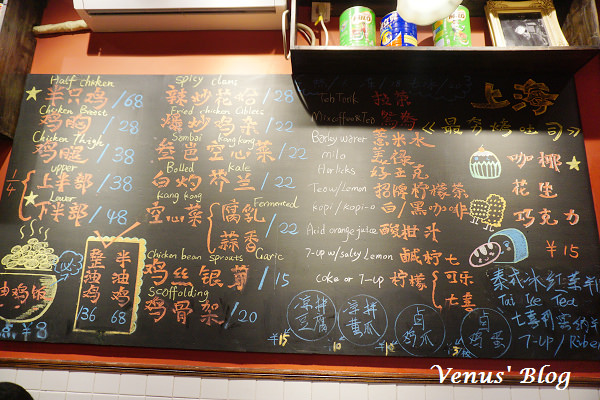 Half chicken
☆ 半只鸡/68
Chicken Breast
鸡肉/28
Chicken Thigh
鸡腿/38
1/4
upper
上半部/38
Lower
☆ 下半部/48
整油鸡 36
半油鸡 68
Spicy clams
辣炒花哈/28
Fried chicken Giblets
爆炒鸡杂/22
Sambai kang kong
叁岜空心菜/22
Boiled kale
白灼芥兰/22
kang kong
空心菜
Fermented
腐乳
蒜香
/22
Garic
Chicken bean sprouts
鸡丝银芽/15
Scaffolding
鸡骨架/20
Teh Tarik 拉茶
Mixcoffee&Tea 鸳鸯
Barley warer 薏米水
milo 美禄
Horlicks 好立克
Teow/Lemon 招牌柠檬茶
kopi/kopi-o 白/黑咖啡
Acid orange juice 酸甜斗
7-up w/salty Lemon 鹹柠七
coke or 7-up 柠檬
可乐
七喜
凉拌豆腐
¥15
凉拌黄瓜
10
卤鸡爪
卤鸡蛋
上海
《最多烤吐司》
咖椰
花生
巧克力
¥15
泰式冰红茶
Tai Ice Tea
7-UP/Riber
Venus' Blog